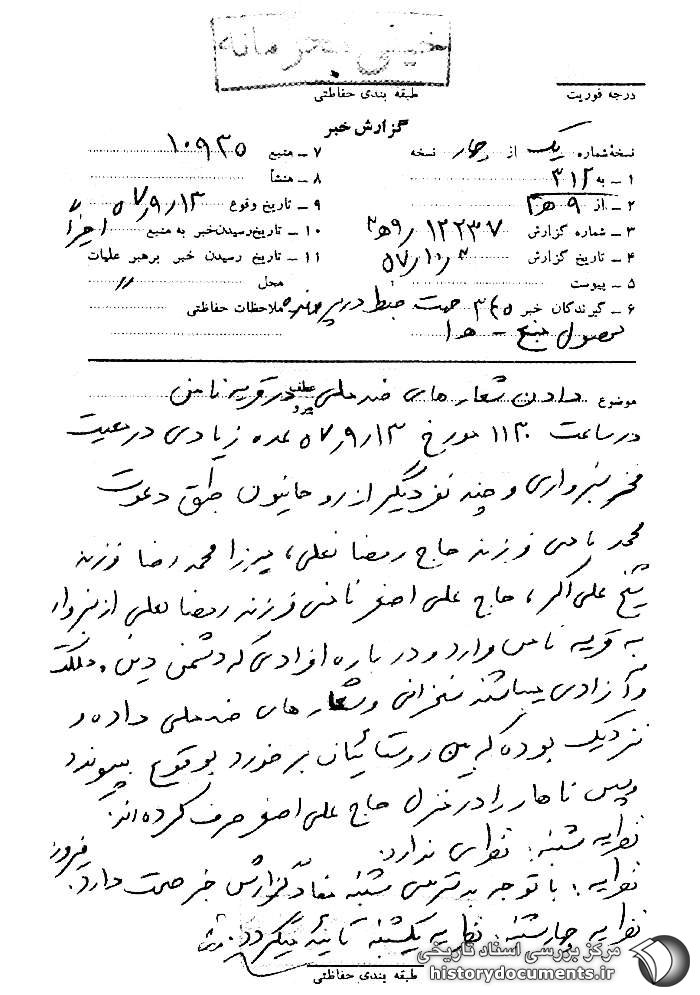 خیلی محرمانه
درجه فوریت
طبقه بندی حفاظتی
گزارش خبر
نسخه شماره یک از چهار نسخه
۱ – به ۳۱۲
۲ – از ۹ ه‍ ۳
۳ – شماره گزارش ۱۲۲۳۷ / ۹ ه‍ ۳
۴ – تاریخ گزارش ۵۷/۱۰/۳
۵ – پیوست
۶ – گیرندگان خبر ۳۴۵ جهت ضبط در پرونده
محصول منبع – ه‍ ۱
۷ – منبع ۱۰۹۳۵
۸ – منشأ
۹ – تاریخ وقوع ۵۷/۹/۱۳
۱۰ – تاریخ رسیدن خبر به منبع اخیراً
۱۱ – تاریخ رسیدن خبر برهبر عملیات
محل
ملاحظات حفاظتی
موضوع دادن شعارهای ضد ملی در قریه نامن
در ساعت ۱۱۳۰ مورخ ۵۷/۹/۱۳ عده زیادی در معیت
فخر سبزواری و چند نفر دیگر از روحانیون طبق دعوت
محمد نامنی فرزند حاج رمضانعلی، میرزا محمد رضا فرزند
شیخ علی اکبر، حاج علی اصغر نامنی فرزند رمضانعلی از سبزوار
به قریه نامن وارد و درباره افرادی که دشمن دین و مملکت
و آزادی میباشند سخنرانی و شعارهای ضد ملی داده و
نزدیک بوده که بین روستائیان برخورد بوقوع بپیوندد
و پس ناهار را در منزل حاج علی اصغر صرف کرده اند.
نظریه شنبه: نظری ندارد.
نظریه: با توجه به دسترسی شنبه مفاد گزارش خبر صحت دارد. فیروز
نظریه چهارشنبه: نظریه یکشنبه تائید میگردد.
طبقه بندی حفاظتی
مرکز بررسی اسناد تاریخی
historydocuments.ir